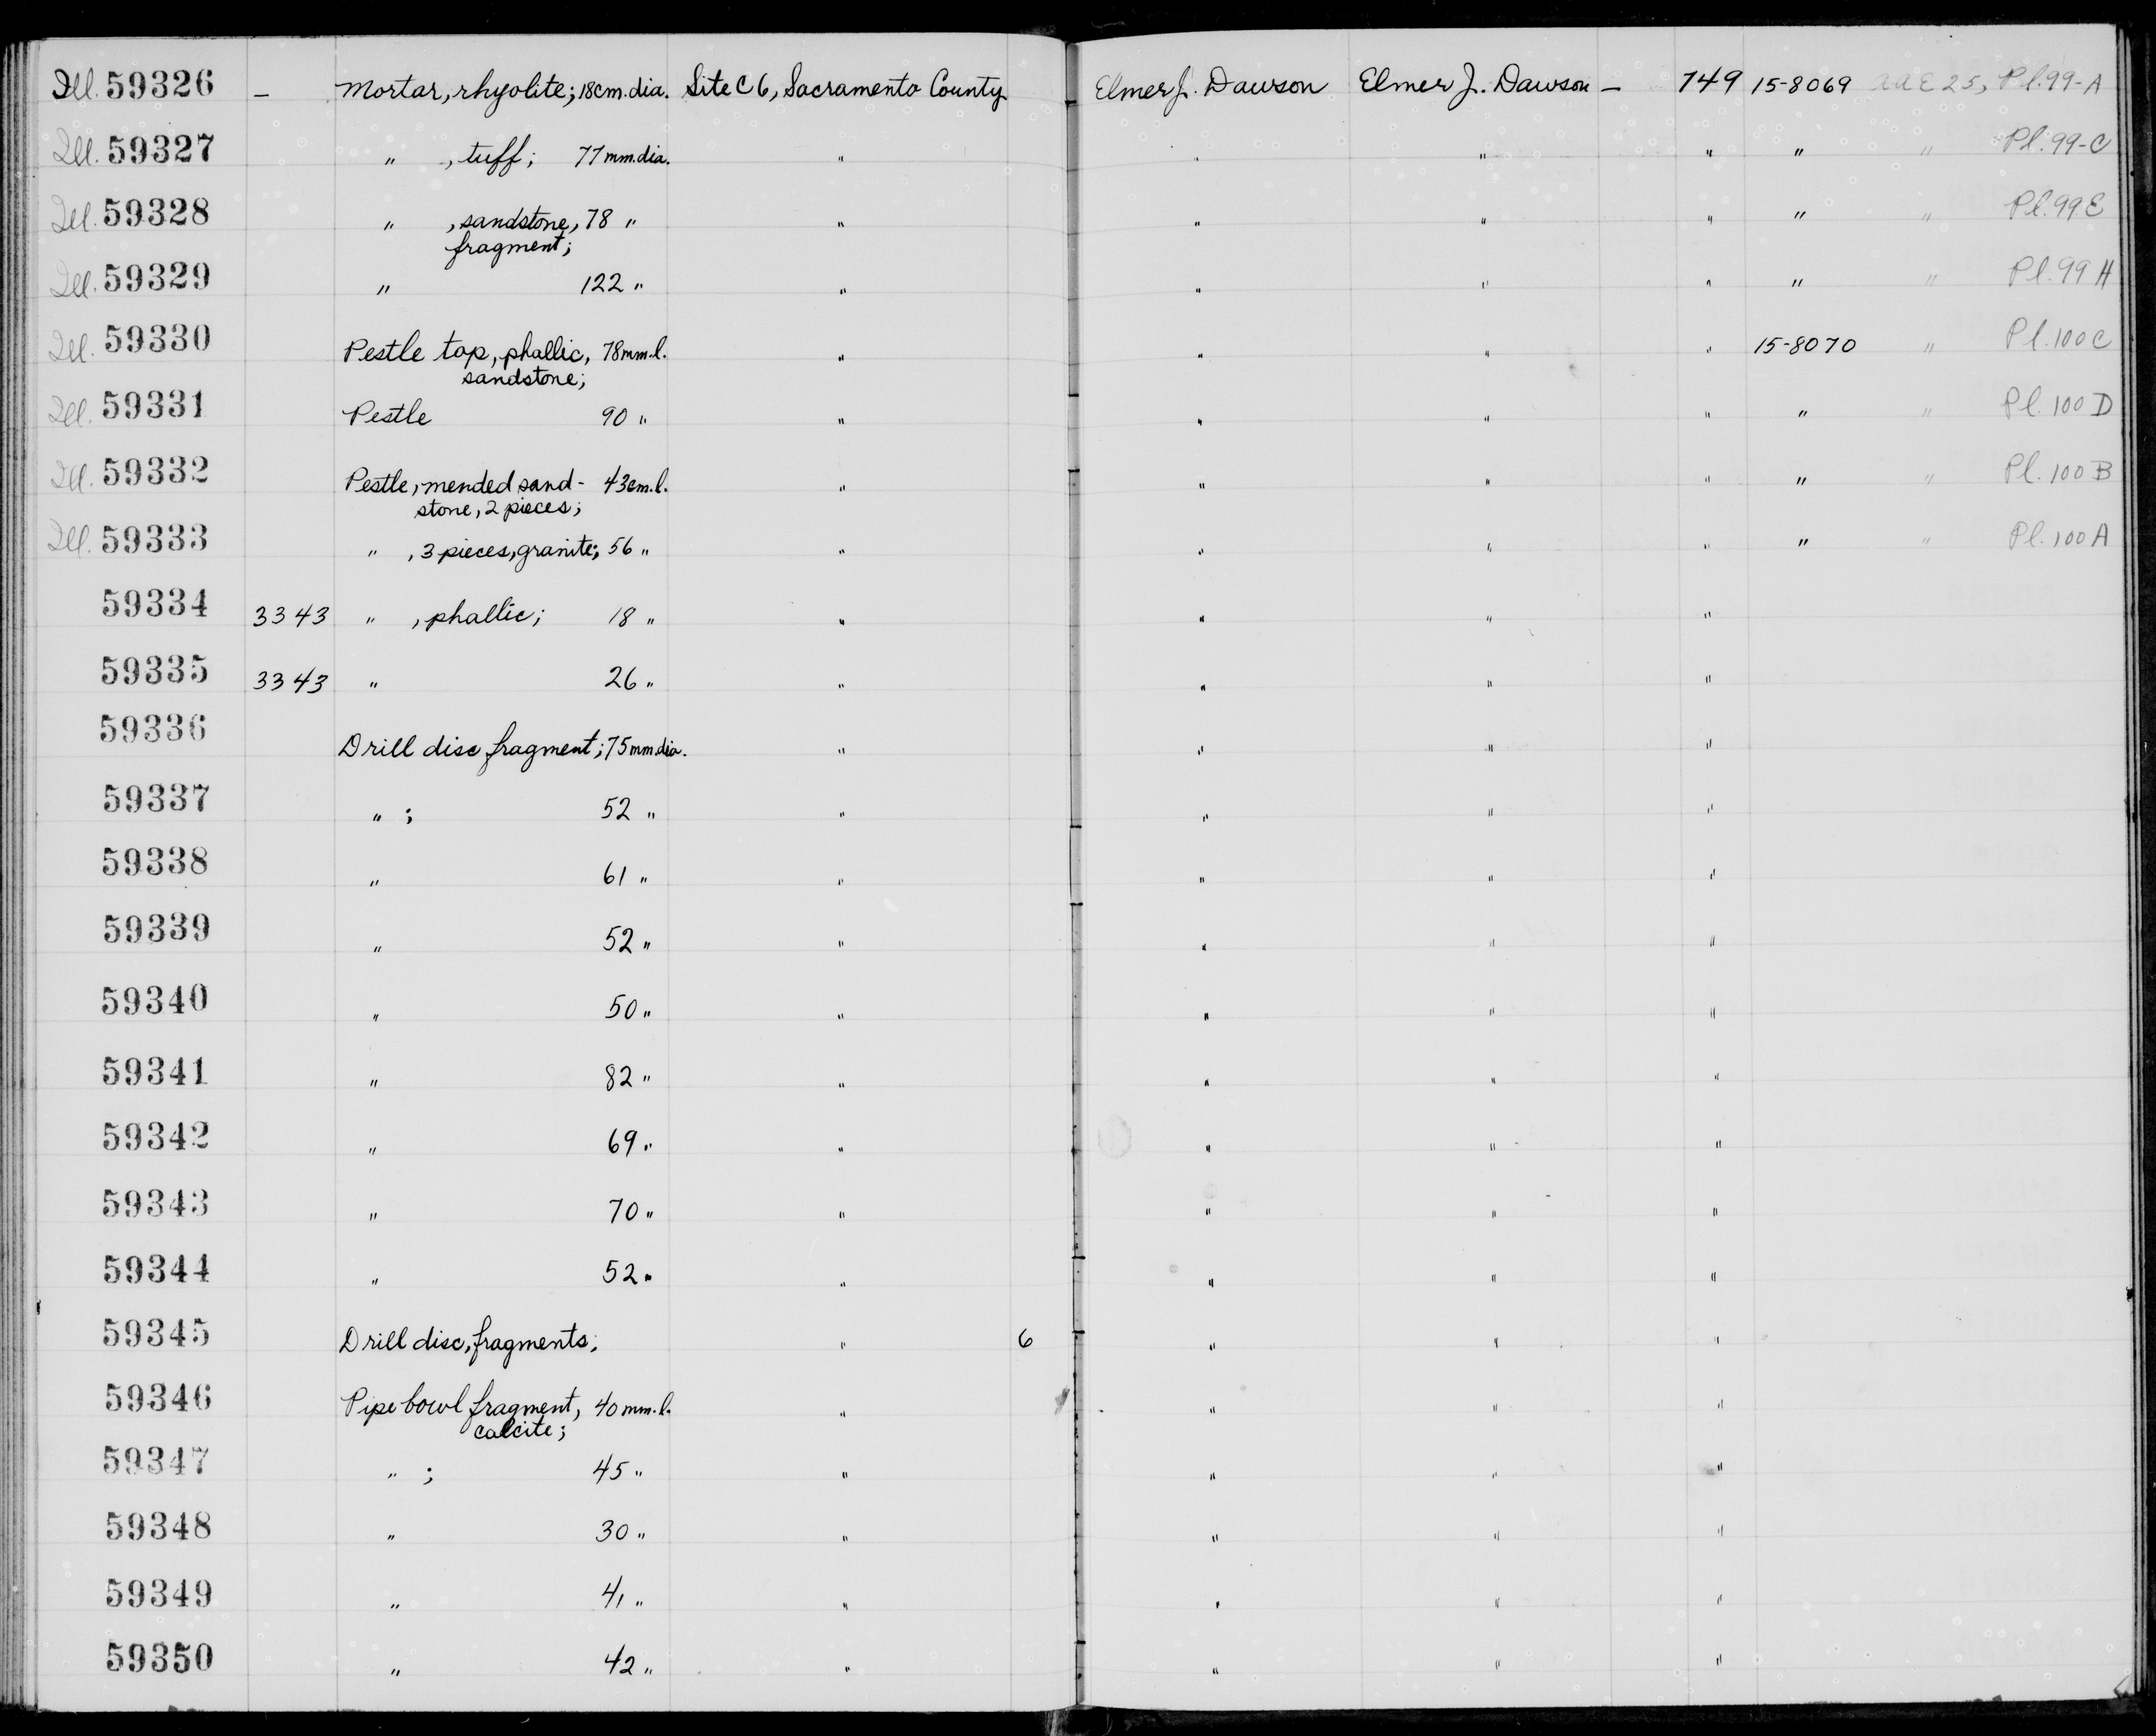 Ill. 59326 – Mortar, rhyolite; 18cm. dia. Site C 6, Sacramento County Elmer J. Dawson Elmer J. Dawson – 749 15-8069 AAE 25, Pl. 99-A
Ill. 59327 " , tuff; 77 mm. dia. " " " " " " Pl. 99-C
Ill. 59328 " , sandstone, 78 " " " " " " " Pl. 99 E
fragment;
Ill. 59329 " 122 " " " " " " " Pl. 99 H
Ill. 59330 Pestle top, phallic, 78 mm. l. " " " " 15-8070 " Pl. 100 C
sandstone;
Ill. 59331 Pestle 90 " " " " " " " Pl. 100 D
Ill. 59332 Pestle, mended sand- 43 cm. l. " " " " " " Pl. 100 B
stone, 2 pieces;
Ill. 59333 " , 3 pieces, granite; 56 " " " " " " " Pl. 100 A
59334 3343 " , phallic; 18 " " " " "
59335 3343 " 26 " " " " "
59336 Drill disc fragment; 75 mm. dia. " " " "
59337 " ; 52 " " " " "
59338 " 61 " " " " "
59339 " 52 " " " " "
59340 " 50 " " " " "
59341 " 82 " " " " "
59342 " 69 " " " " "
59343 " 70 " " " " "
59344 " 52 " " " " "
59345 Drill disc, fragments; " 6 " " "
59346 Pipe bowl fragment, 40 mm. l. " " " "
calcite;
59347 " ; 45 " " " " "
59348 " 30 " " " " "
59349 " 41 " " " " "
59350 " 42 " " " " "